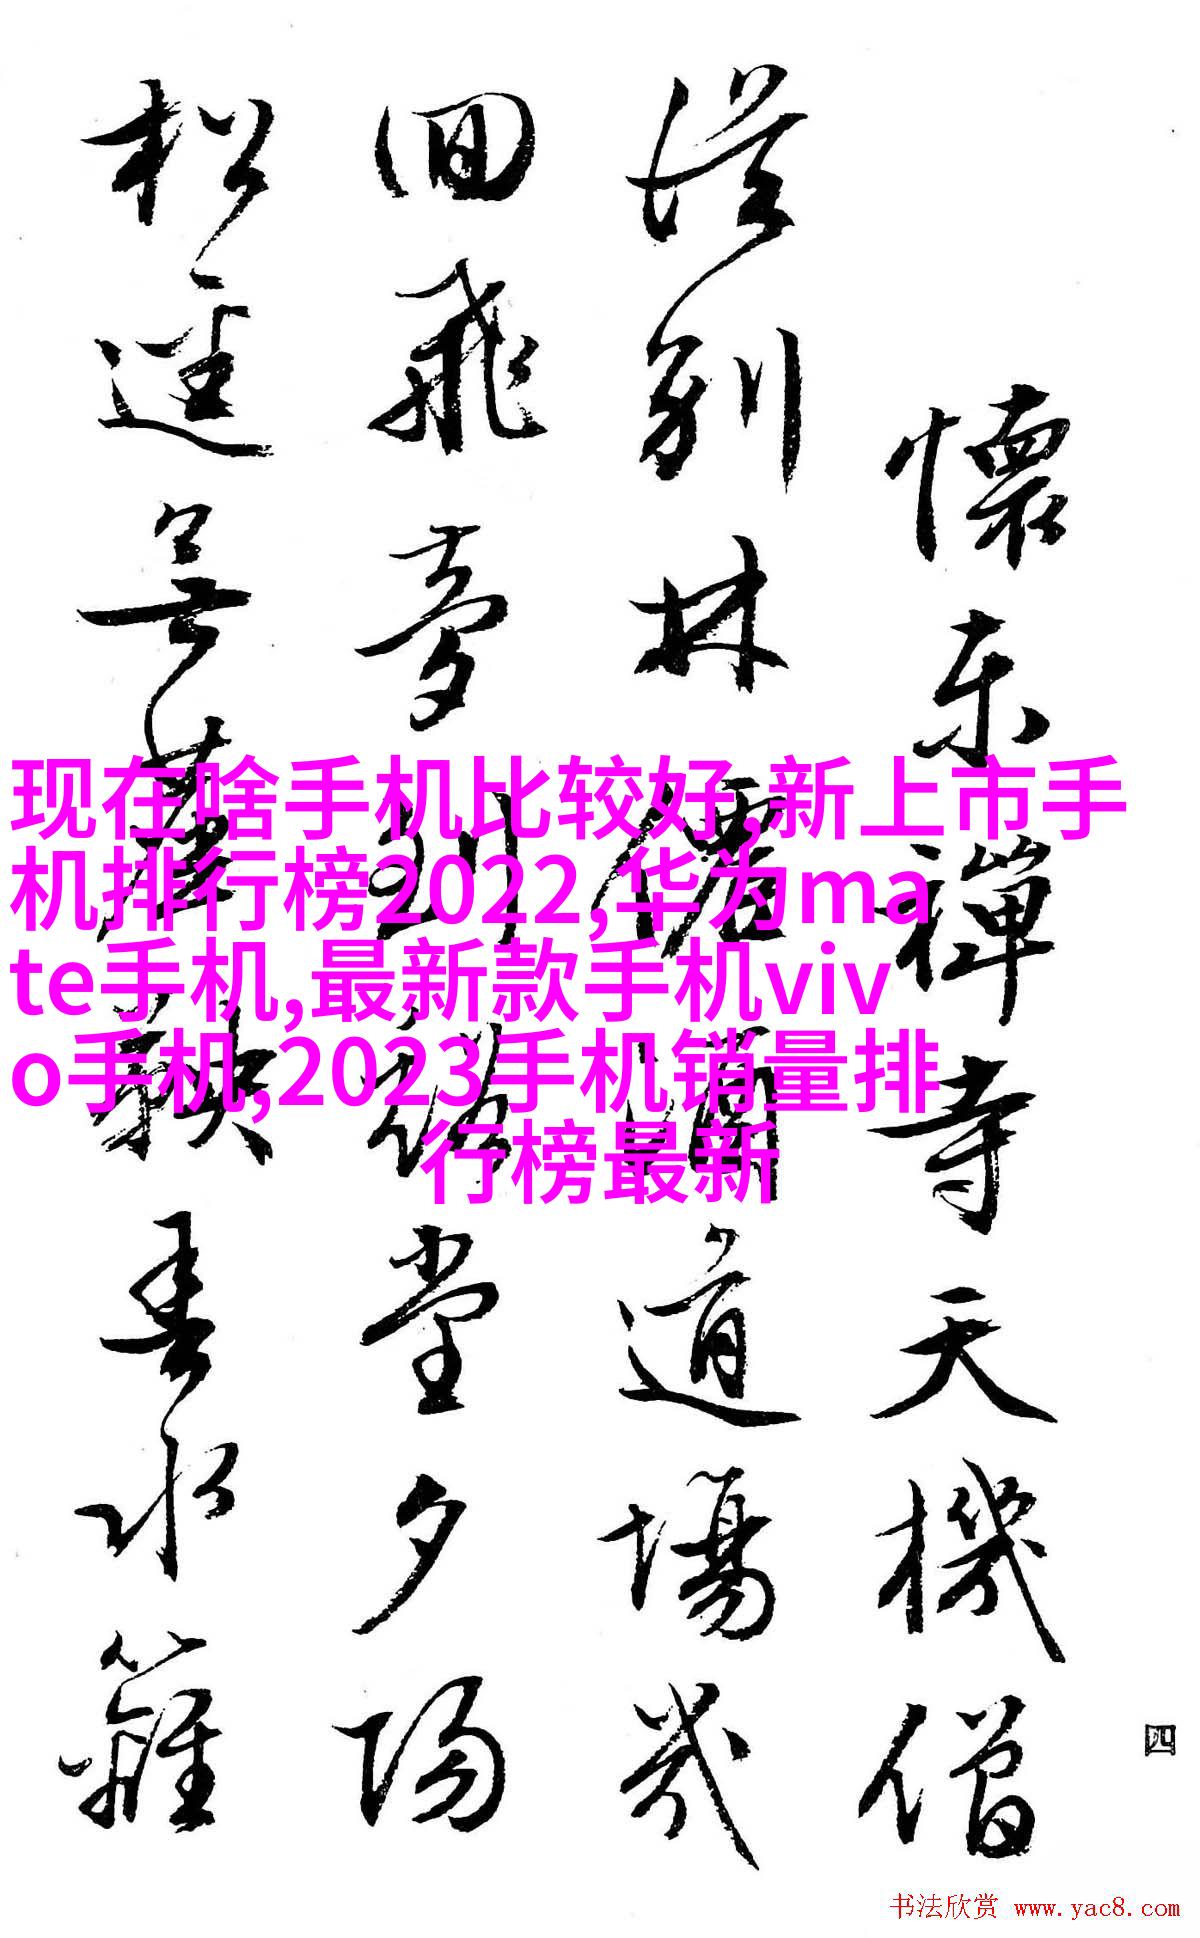 懷東禪寺天機僧
從別林僊 道場幾
回飛夢到 堂夕陽
松逕無塵鞅春水籬
四
现在啥手机比较好,新上市手
机排行榜2022,华为ma
te手机,最新款手机viv
o手机,2023手机销量排
行榜最新
书法欣赏 www.yac8.com